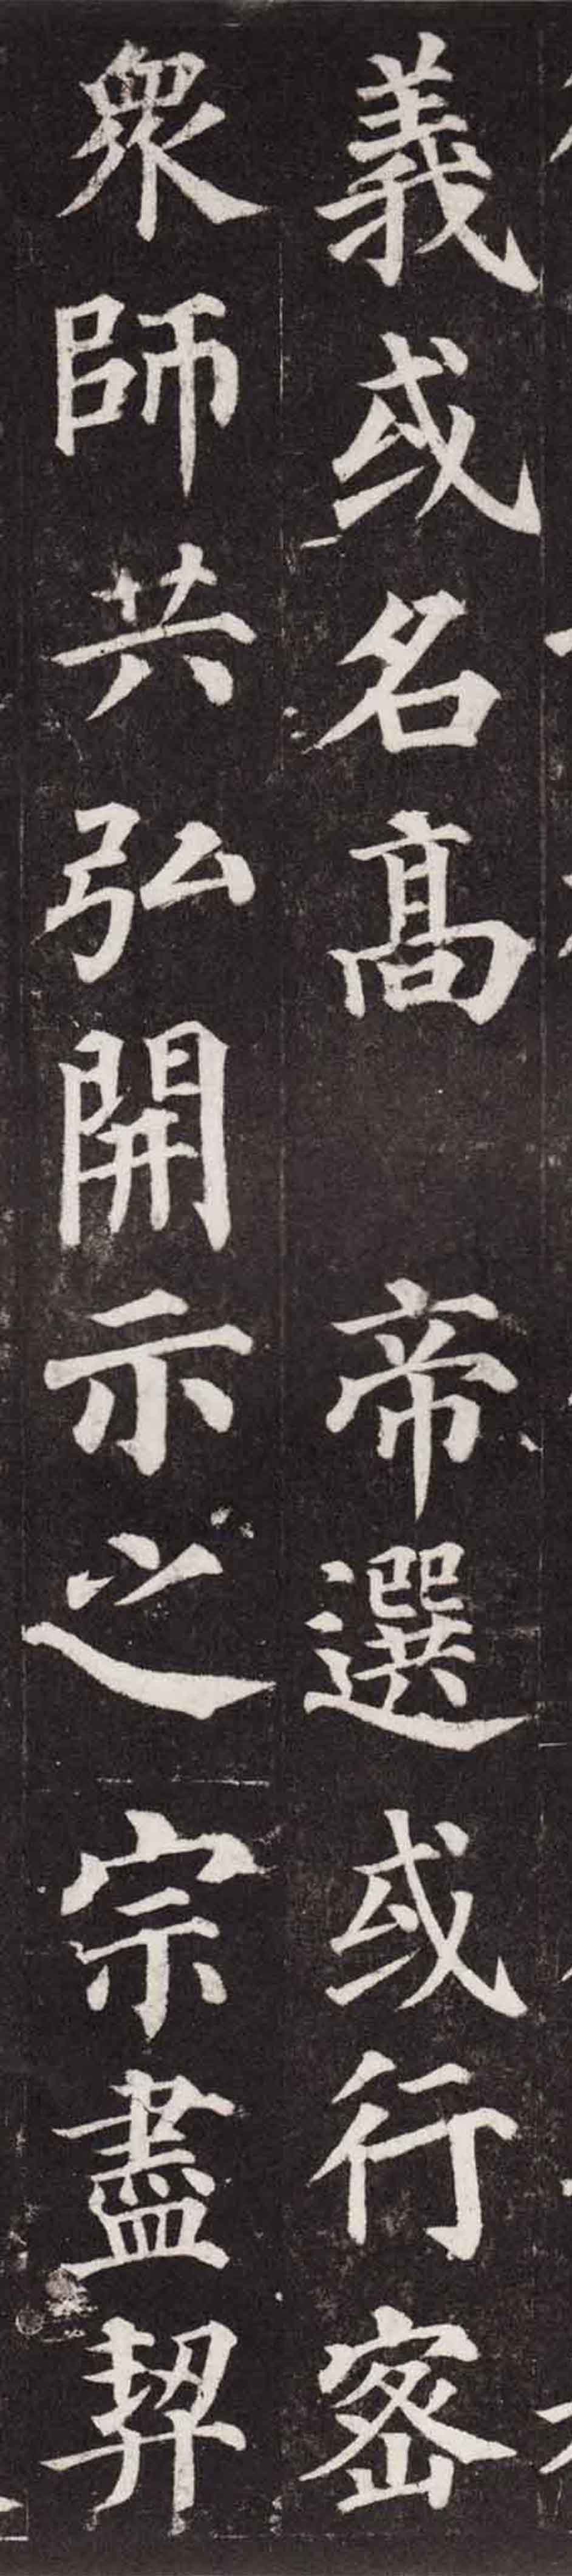 義或名高　帝選或行密
眾師共弘開示之宗盡契